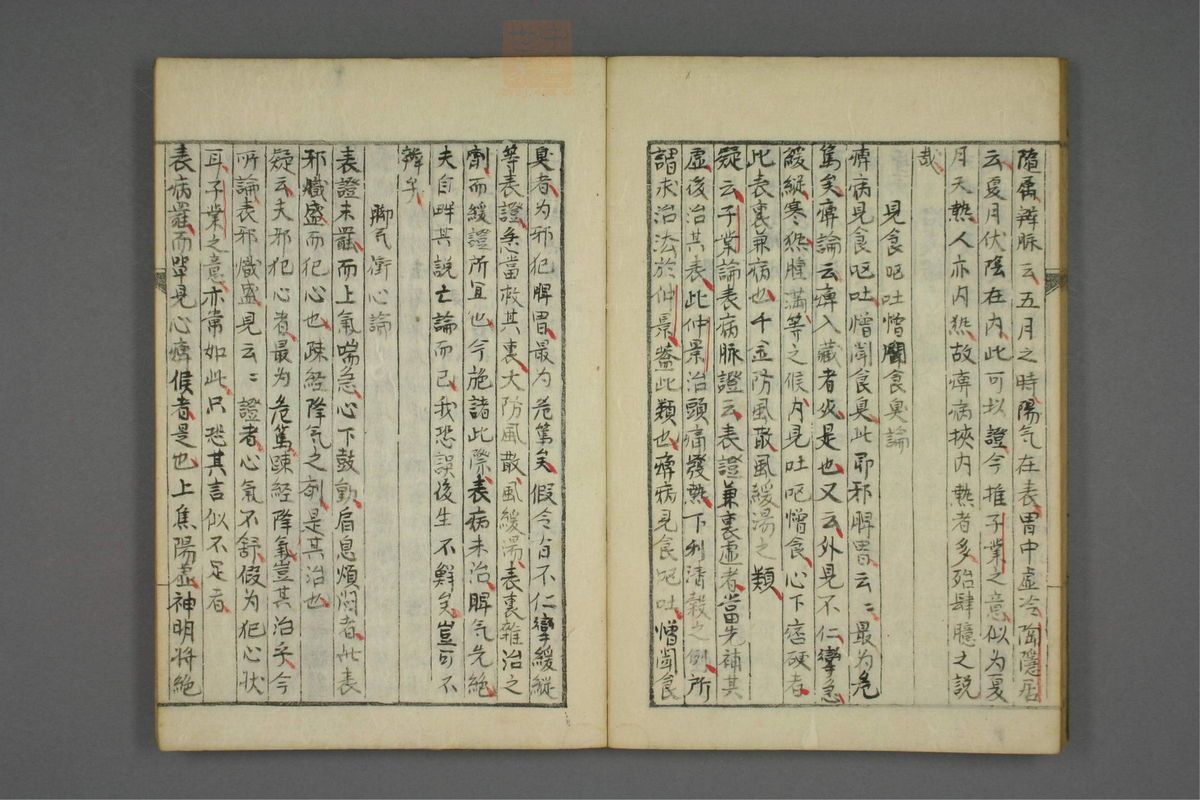 隨膚辨脉云五月之時陽气在表胃中虚冷陶隱居
云夏月伏陰在内此可以證今推子業之意似为夏
月天熱人亦内熱故痺病挾内熱者多殆肆臆之説
哉
見食呕吐憎聞食臭論
痺病見食呕吐憎聞食臭此邪脾胃云〻最为危
篤矣痺論云痺入藏者死是也又云外見不仁攣急
緩縱寒熱腫滿等之候内見吐呕憎食心下痞硬者
此表裏兼病也千金防風散風緩湯之類
疑云子業論表病脉證云表證兼裏虚者當先補其
虚後治其表此仲景治頭痛發熱下利清穀之例所
謂求治法於仲景蓋此類也痺病見食呕吐憎聞食
臭者为邪犯脾胃最为危篤矣假令有不仁攣緩縱
等表證急當救其裏大防風散風緩湯表裏雜治之
劑而緩證所宜也今施諸此際表病未治脾气先絶
夫自畔其説亡論而已我恐誤後生不鮮矣豈可不
辨矣
脚气衝心論
表證未罷而上氣喘急心下鼓動肩息煩悶者此表
邪熾盛而犯心也疎經降气之劑是其治也
疑云夫邪犯心者最为危篤疎經降氣豈其治乎今
所論表邪熾盛見云〻證者心氣不舒假为犯心状
耳子業之意亦常如此只恐其言似不足者
表病罷而單見心痺候者是也上焦陽虚神明將絶